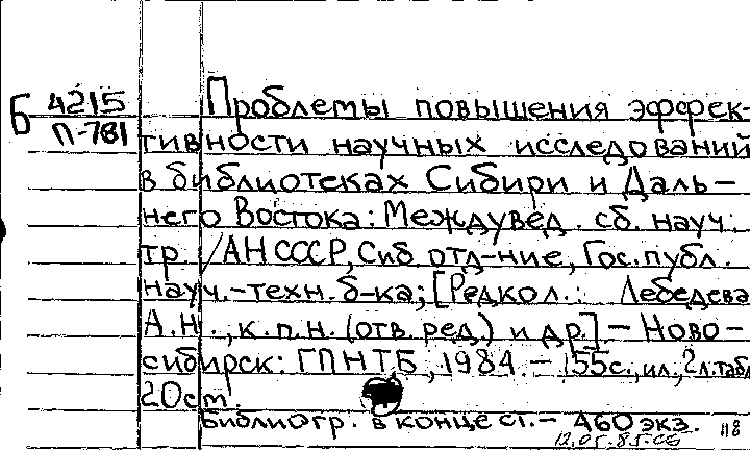 Б 4215
П-781
Проблемы повышения эффек-
тивности научных исследований
в библиотеках Сибири и Даль-
него Востока: Междувед. сб. науч.
тр. / АН СССР, Сиб. отд-ние, Гос. публ.
науч.-техн. б-ка; [Редкол.: Лебедева
А.Н., к.п.н. (отв. ред.) и др.] - Ново-
сибирск: ГПНТБ, 1984. - 155с., ил., 2 л. табл.
20cm.
Библиогр. в конце ст. - 460 экз.